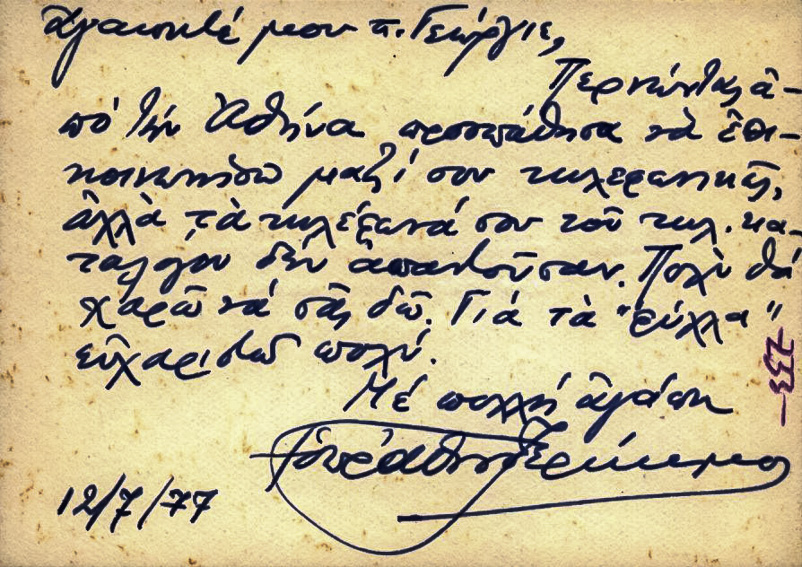 Ἀγαπητέ μου π. Γεώργιε,
Περνώντας ἀ-
πό τήν Ἀθήνα προσπάθησα νὰ ἐπι-
κοινωνήσω μαζί σου τηλεφωνικῶς,
ἀλλὰ τὰ τηλέφωνά σου τοῦ τηλ. κα-
ταλόγου δὲν ἀπαντοῦσαν. Πολὺ θά
χαρῶ νά σᾶς δῶ. Γιά τὰ "φύλλα"
εὐχαριστῶ πολύ.
Μέ πολλή ἀγάπη
12/7/77
233-